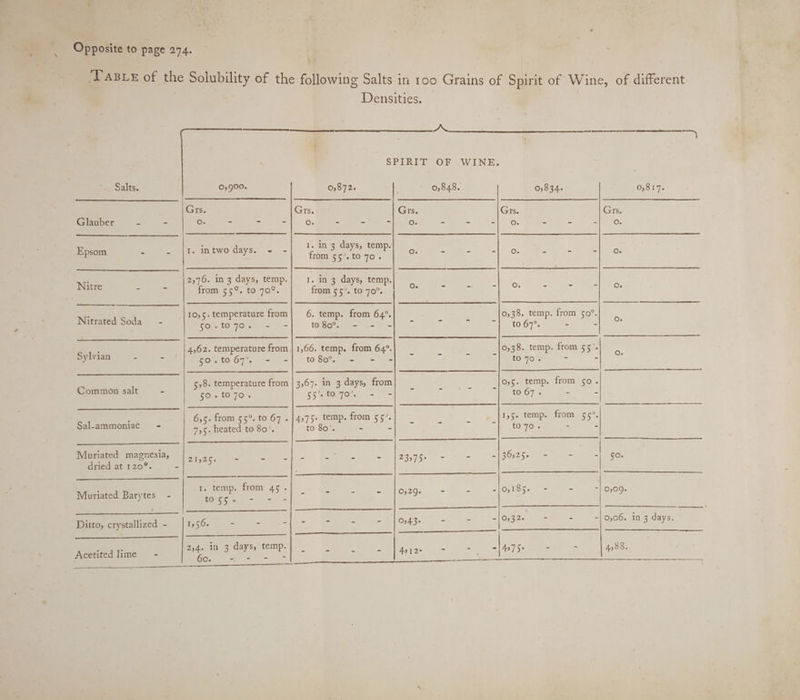 Opposite to page 274.
TABLE of the Solubility of the following Salts in 100 Grains of Spirit of Wine, of different
Densities.
SPIRIT OF WINE.
Salts. 0,900. 0,872. 0,848. 0,834. 0,817.
Grs. Grs. Grs. Grs. Grs.
Glauber - - 0. - - - 0. - - - 0. - - - 0. - - - 0.
Epsom - - 1. in two days. - - 1. in 3 days, temp. 0. - - - 0. - - - 0.
from 55°. to 70°.
Nitre - - 2,76. in 3 days, temp. 1. in 3 days, temp. 0. - - - 0. - - - 0.
from 55°. to 70°. from 55°. to 70°.
Nitrated Soda - 10,5. temperature from 6. temp. from 64°. - - - 0,38. temp. from 50°. 0.
50°. to 70°. - - to 80°. - - - to 67°. - -
Sylvian - - 4,62. temperature from 1,66. temp. from 64°. - - - 0,38. temp. from 55°. 0.
50°. to 67°. - - to 80°. - - - to 70°. - -
Common salt - 5,8. temperature from 3,67. in 3 days, from - - - 0,5. temp. from 50°.
50°. to 70°. 55°. to 70°. - - to 67°. - -
Sal-ammoniac - 6,5. from 55°. to 67°. 4,75. temp. from 55°. - - - 1,5. temp. from 55°.
7,5. heated to 80°. to 80°. - - to 70°. - -
Muriated magnesia, 21,25. - - - - - - - 23,75. - - - 36,25. - - - 50.
dried at 120°. -
Muriated Barytes - 1. temp. from 45°. - - - - 0,29. - - - 0,185. - - - 0,09.
to 55°. - - -
Ditto, crystallized - 1,56. - - - - - - - 0,43. - - - 0,32. - - - 0,06. in 3 days.
Acetited lime - 2,4. in 3 days, temp. - - - - 4,12. - - - 4,75. - - 4,88.
60. - - - -